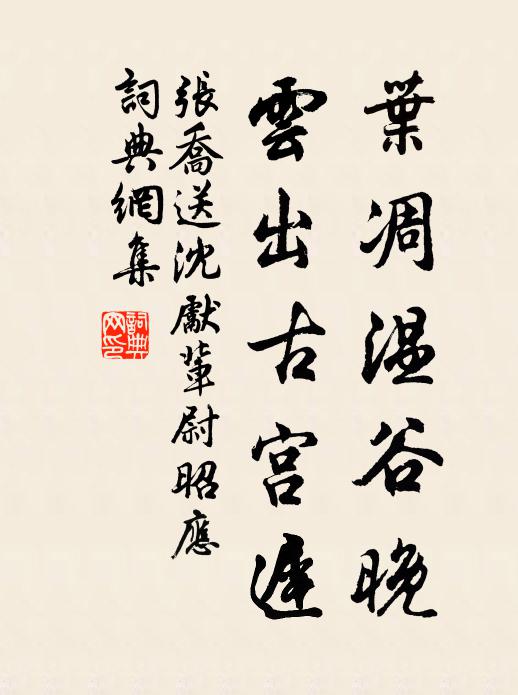 葉凋溫谷晚
雲出古宮遲
張喬送沈獻輩尉昭應
詞典網集
詞典網印